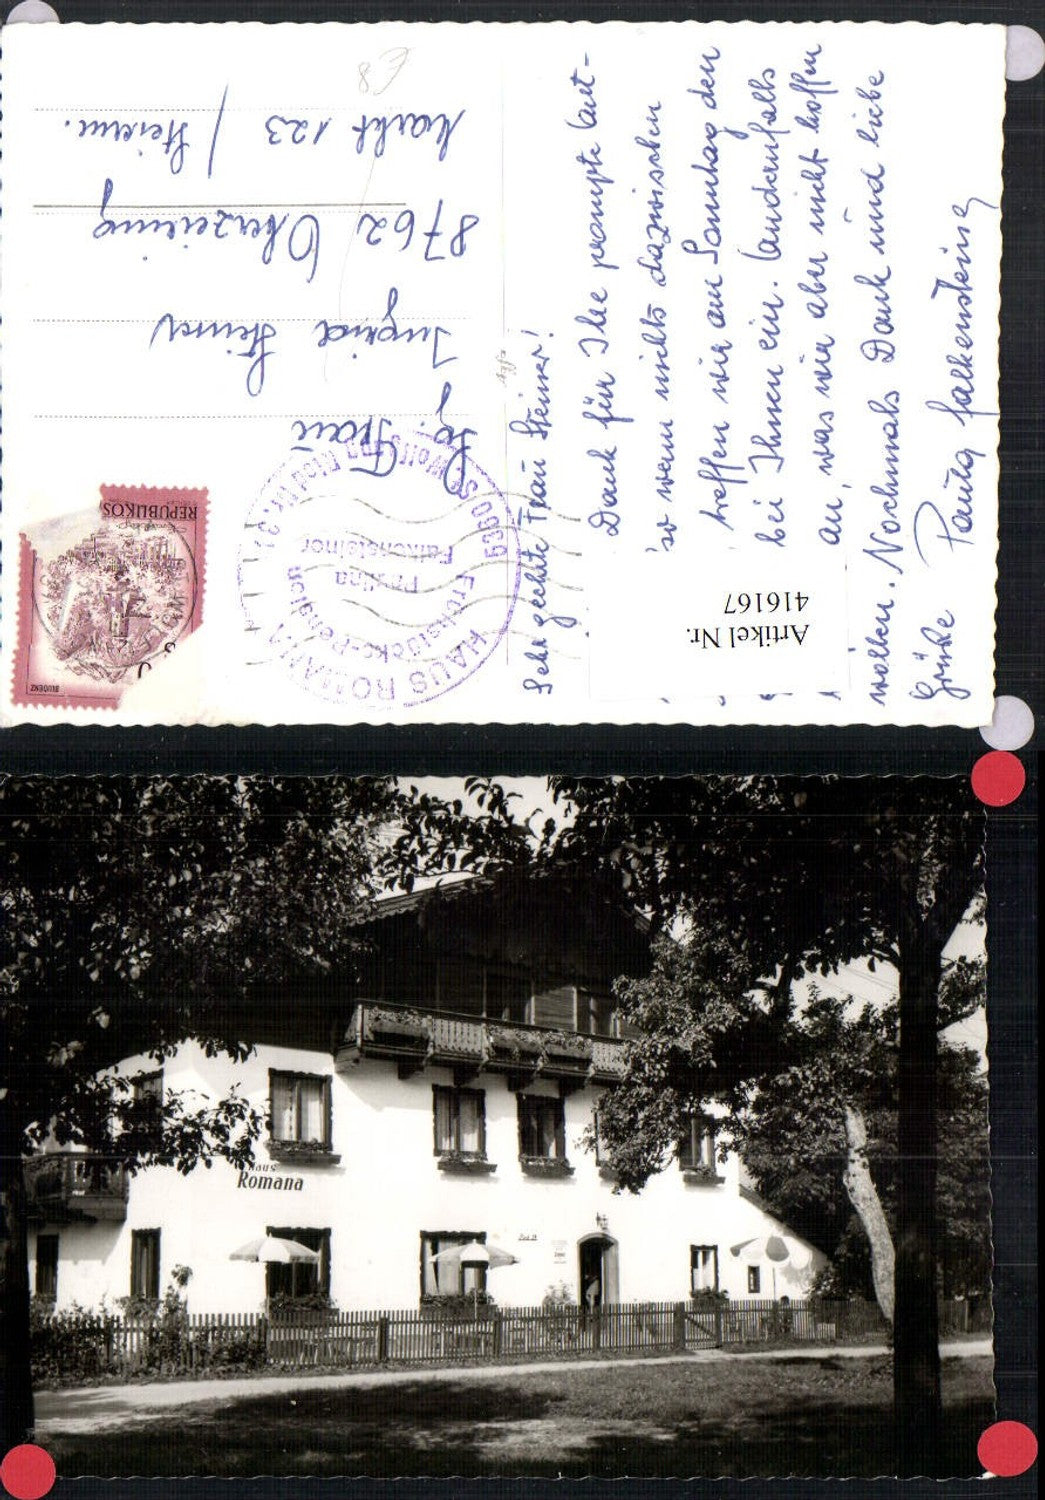 Sehr geehrte Frau Steiner!
Dank für Ihre prompte Ant-
so wenn nichts dazwischen
treffen wir am Sonntag den
bei Ihnen ein. Andernfalls
an, was wir aber nicht hoffen
wollen. Nochmals Dank und liebe
Grüße Paula Falkensteiner
Frau
Steiner
8762 Oberzeiring
Markt 123 / Steierm.
REPUBLIK ÖS
BLUDENZ
HAUS ROMANA
Frühstücks-Pension
Paulina
Falkensteiner
5360 St. Wolfgang
Artikel Nr.
416167
Haus
Romana